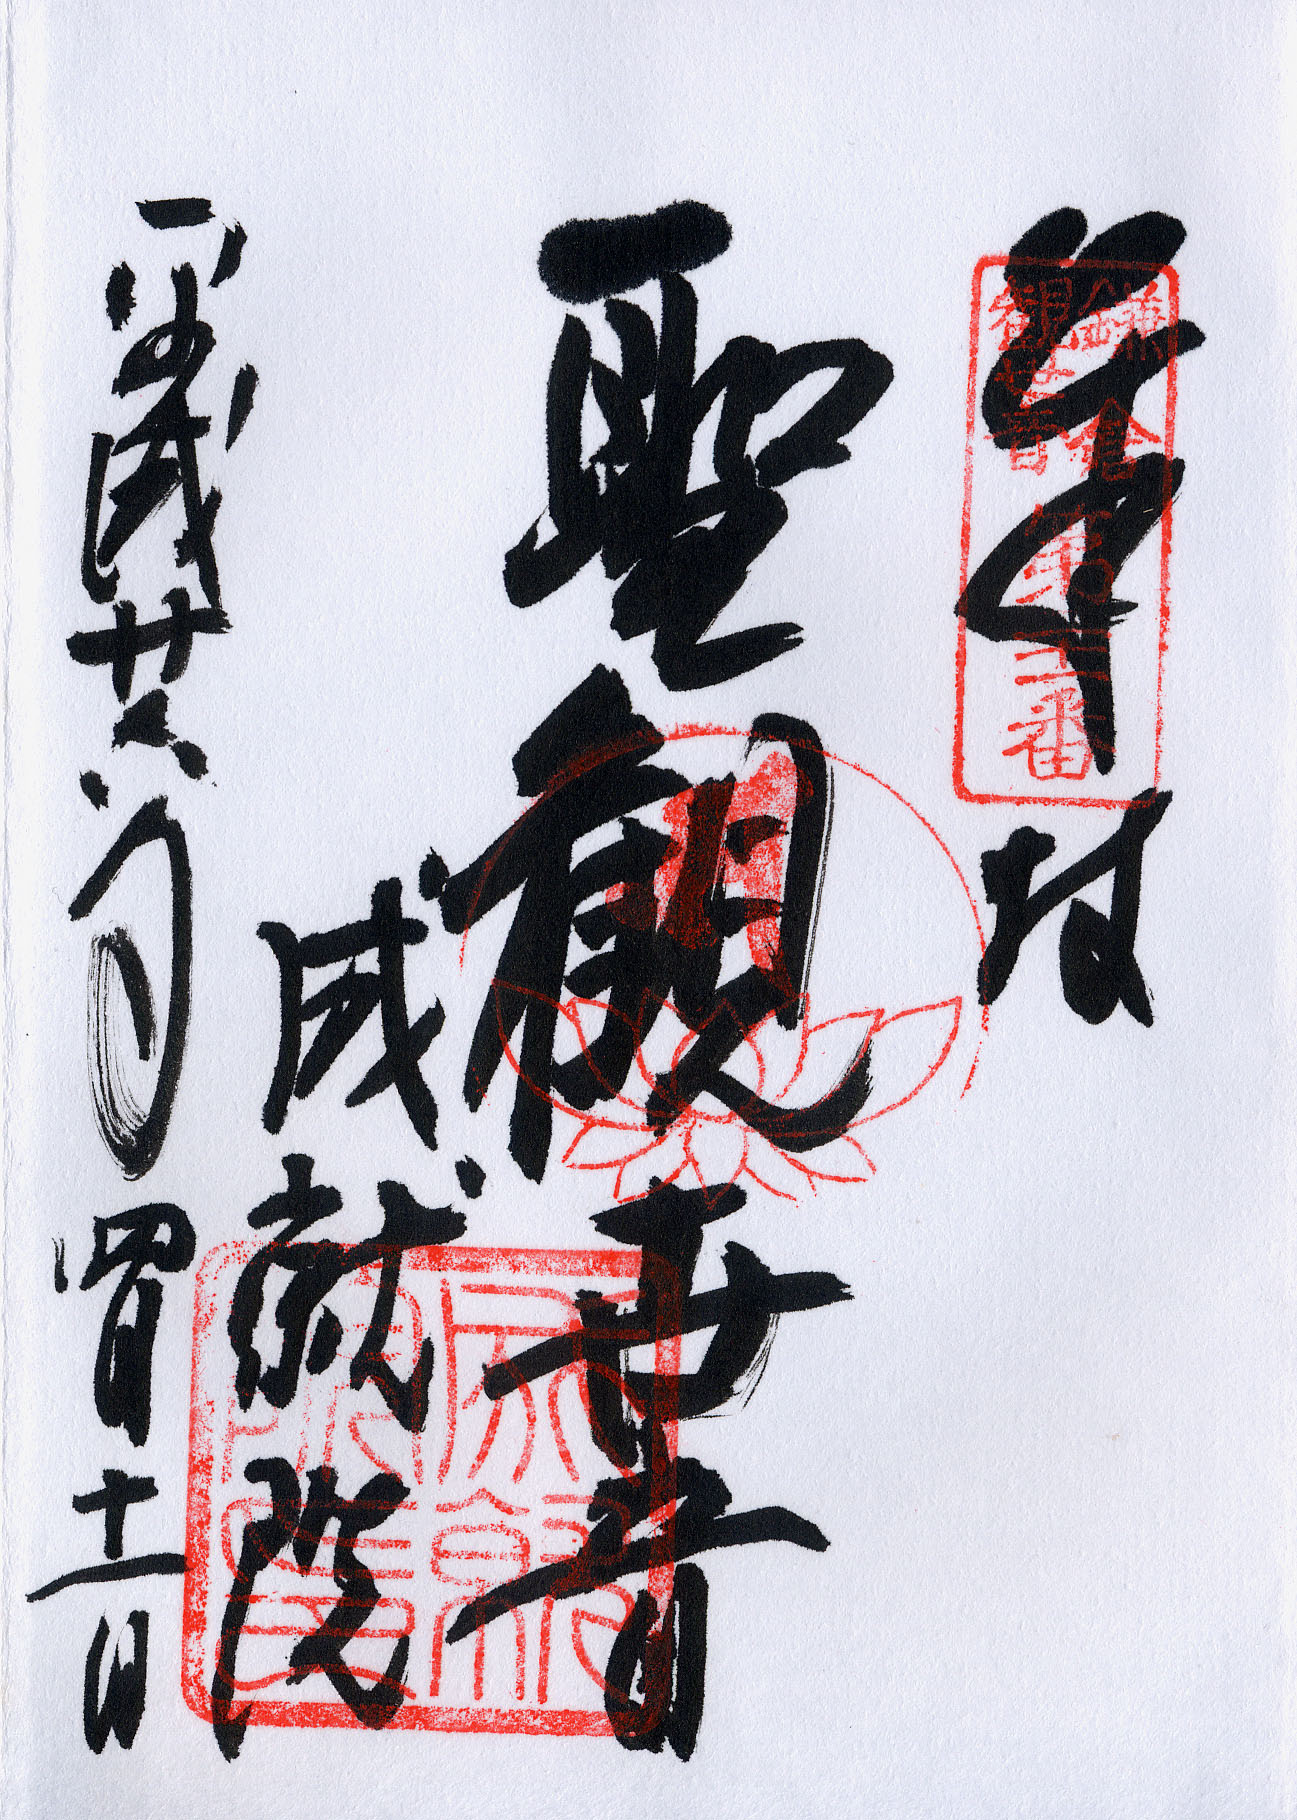 奉拝
鎌倉
観世音
第
番
聖観世音
成就院
平成廿
年
四月
十一日